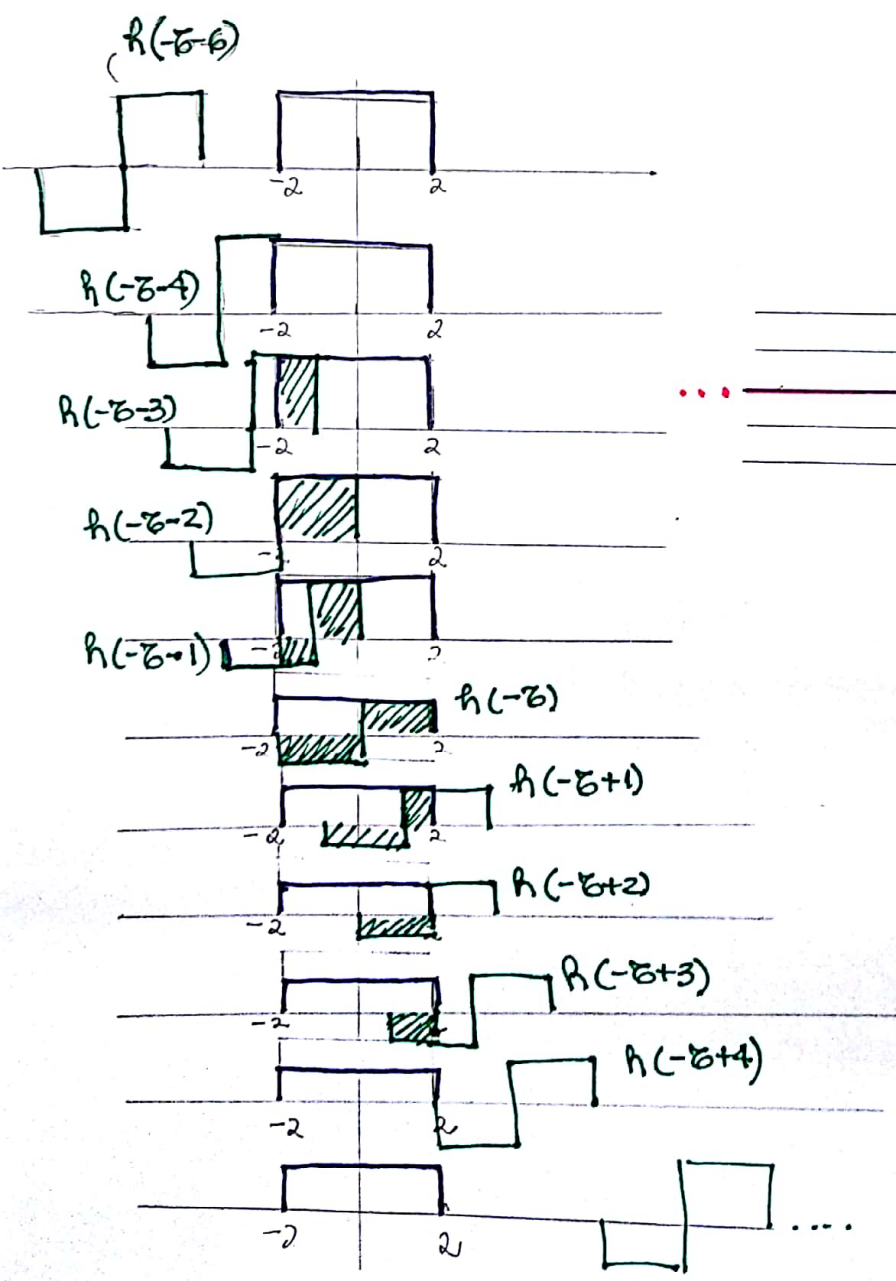 h(-τ-6)
-2 2
h(-τ-4)
-2 2
h(-τ-3)
-2 2
h(-τ-2)
2
h(-τ-1)
2
h(-τ)
-2 2
h(-τ+1)
-2 2
h(-τ+2)
-2
h(-τ+3)
-2
h(-τ+4)
-2 2
2
....